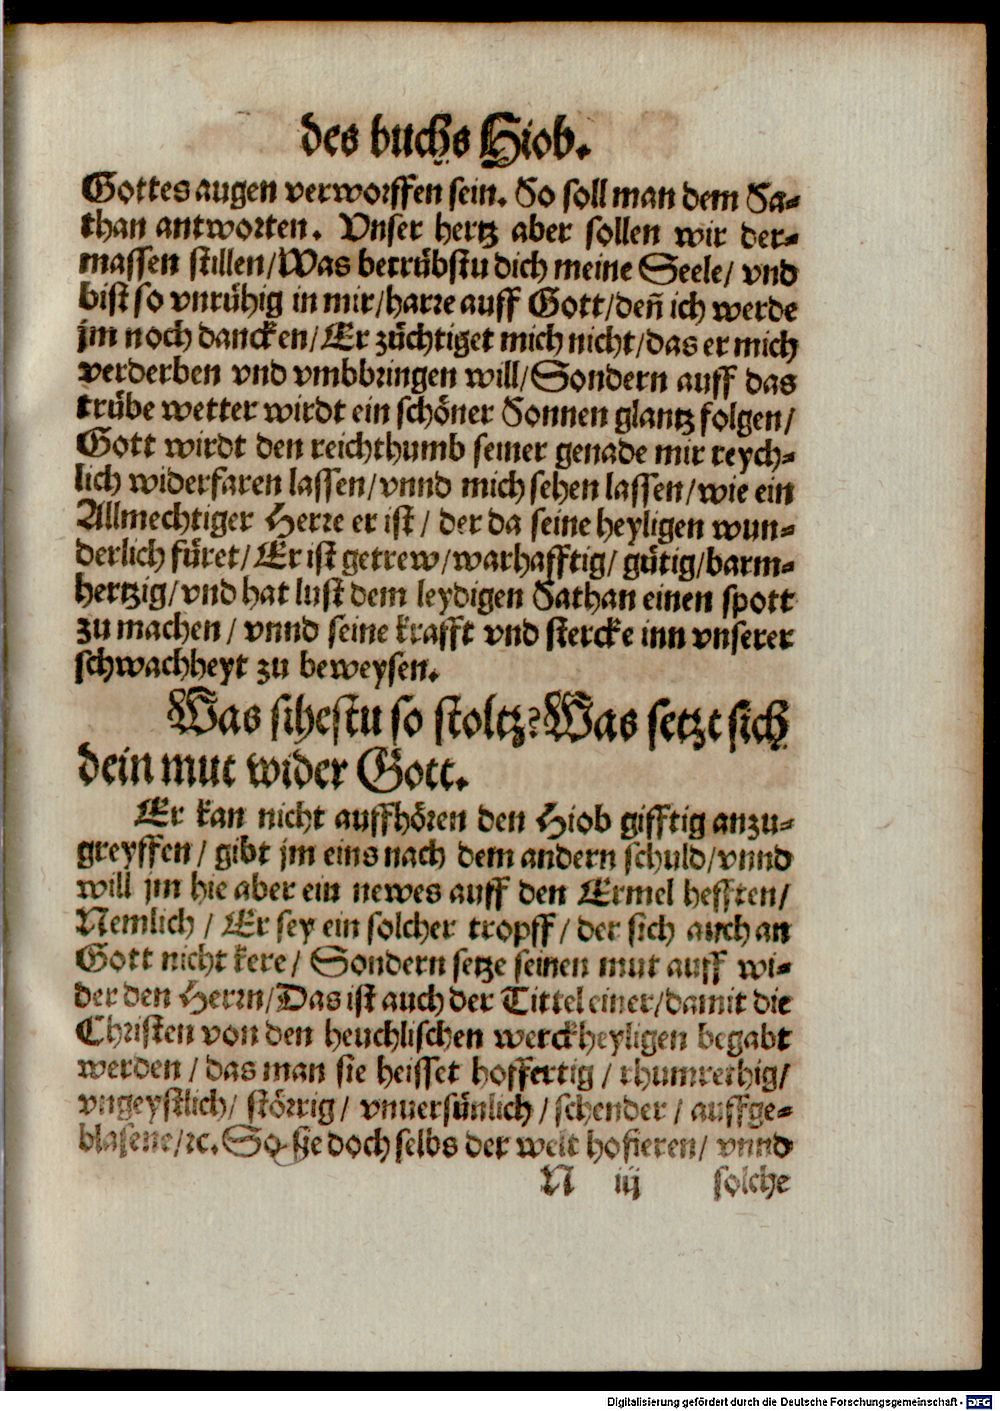 des buchs Hiob.
Gottes augen verworffen sein. So soll man dem Sa-
than antworten. Vnser hertz aber sollen wir der-
massen stillen/Was betrübstu dich meine Seele/ vnd
bist so vnrühig in mir/harre auff Gott/deñ ich werde
jm noch dancken/Er züchtiget mich nicht/das er mich
verderben vnd vmbbringen will/Sondern auff das
trübe wetter wirdt ein schöner Sonnen glantz folgen/
Gott wirdt den reichthumb seiner genade mir reych-
lich widerfaren lassen/vnnd mich sehen lassen/wie ein
Allmechtiger Herre er ist/ der da seine heyligen wun-
derlich füret/Er ist getrew/warhafftig/ gütig/barm-
hertzig/vnd hat lust dem leydigen Sathan einen spott
zu machen/ vnnd seine krafft vnd stercke inn vnserer
schwachheyt zu beweysen.
Was sihestu so stoltz? Was setzt sich
dein mut wider Gott.
Er kan nicht auffhören den Hiob gifftig anzu-
greyffen/ gibt jm eins nach dem andern schuld/vnnd
will jm hie aber ein newes auff den Ermel hefften/
Nemlich/ Er sey ein solcher tropff/ der sich auch an
Gott nicht kere/ Sondern setze seinen mut auff wi-
der den Herrn/Das ist auch der Tittel einer/damit die
Christen von den heuchlischen werckheyligen begabt
werden/ das man sie heisset hoffertig/ rhumrethig/
vngeystlich/ störrig/ vnuersünlich/ schender/ auffge-
blasene/ꝛc. So sie doch selbs der welt hofieren/ vnnd
N iij solche
Digitalisierung gefördert durch die Deutsche Forschungsgemeinschaft - DFG